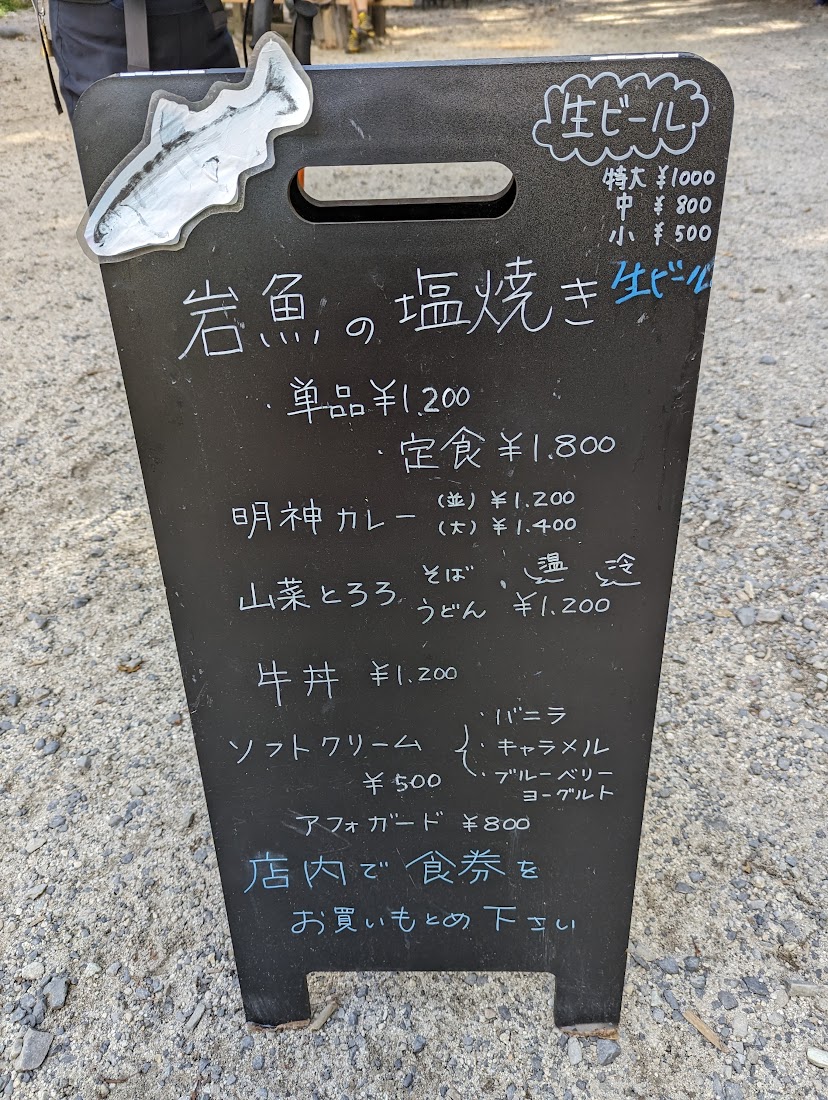 生ビール
特大 ¥1000
中 ¥800
小 ¥500
生ビール
岩魚の塩焼き
・単品¥1.200
・定食¥1.800
明神カレー (並) ¥1.200
(大) ¥1.400
山菜とろろ そば 温 冷
うどん ¥1.200
牛丼 ¥1.200
ソフトクリーム ・バニラ
・キャラメル
¥500 ・ブルーベリー
ヨーグルト
アフォガード ¥800
店内で食券を
お買いもとめ下さい